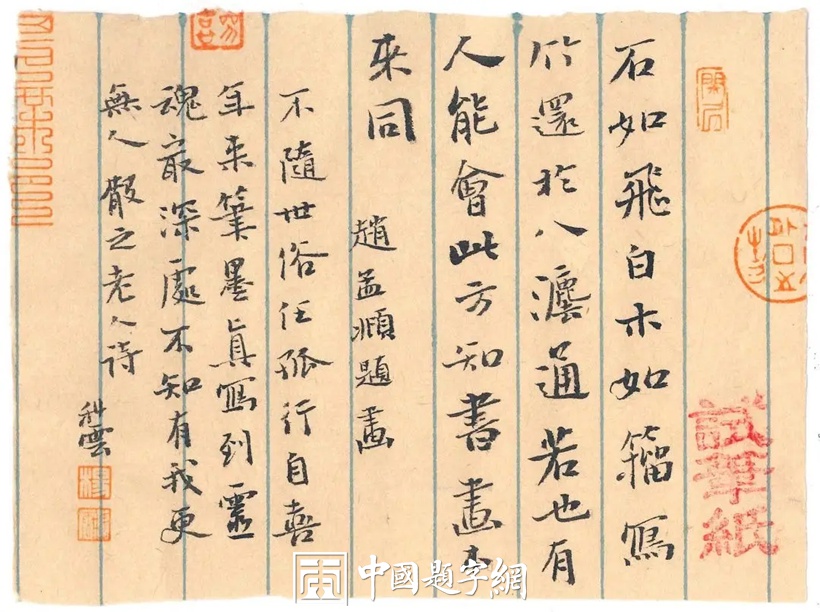 石如飛白木如籀寫
竹還於八灋通若也有
人能會此方知書畫本
來同
趙孟頫題畫
不隨世俗任孤行自喜
年來筆墨真寫到靈
魂最深處不知有我更
無人散之老人詩
科雲
試筆紙
中國題字網